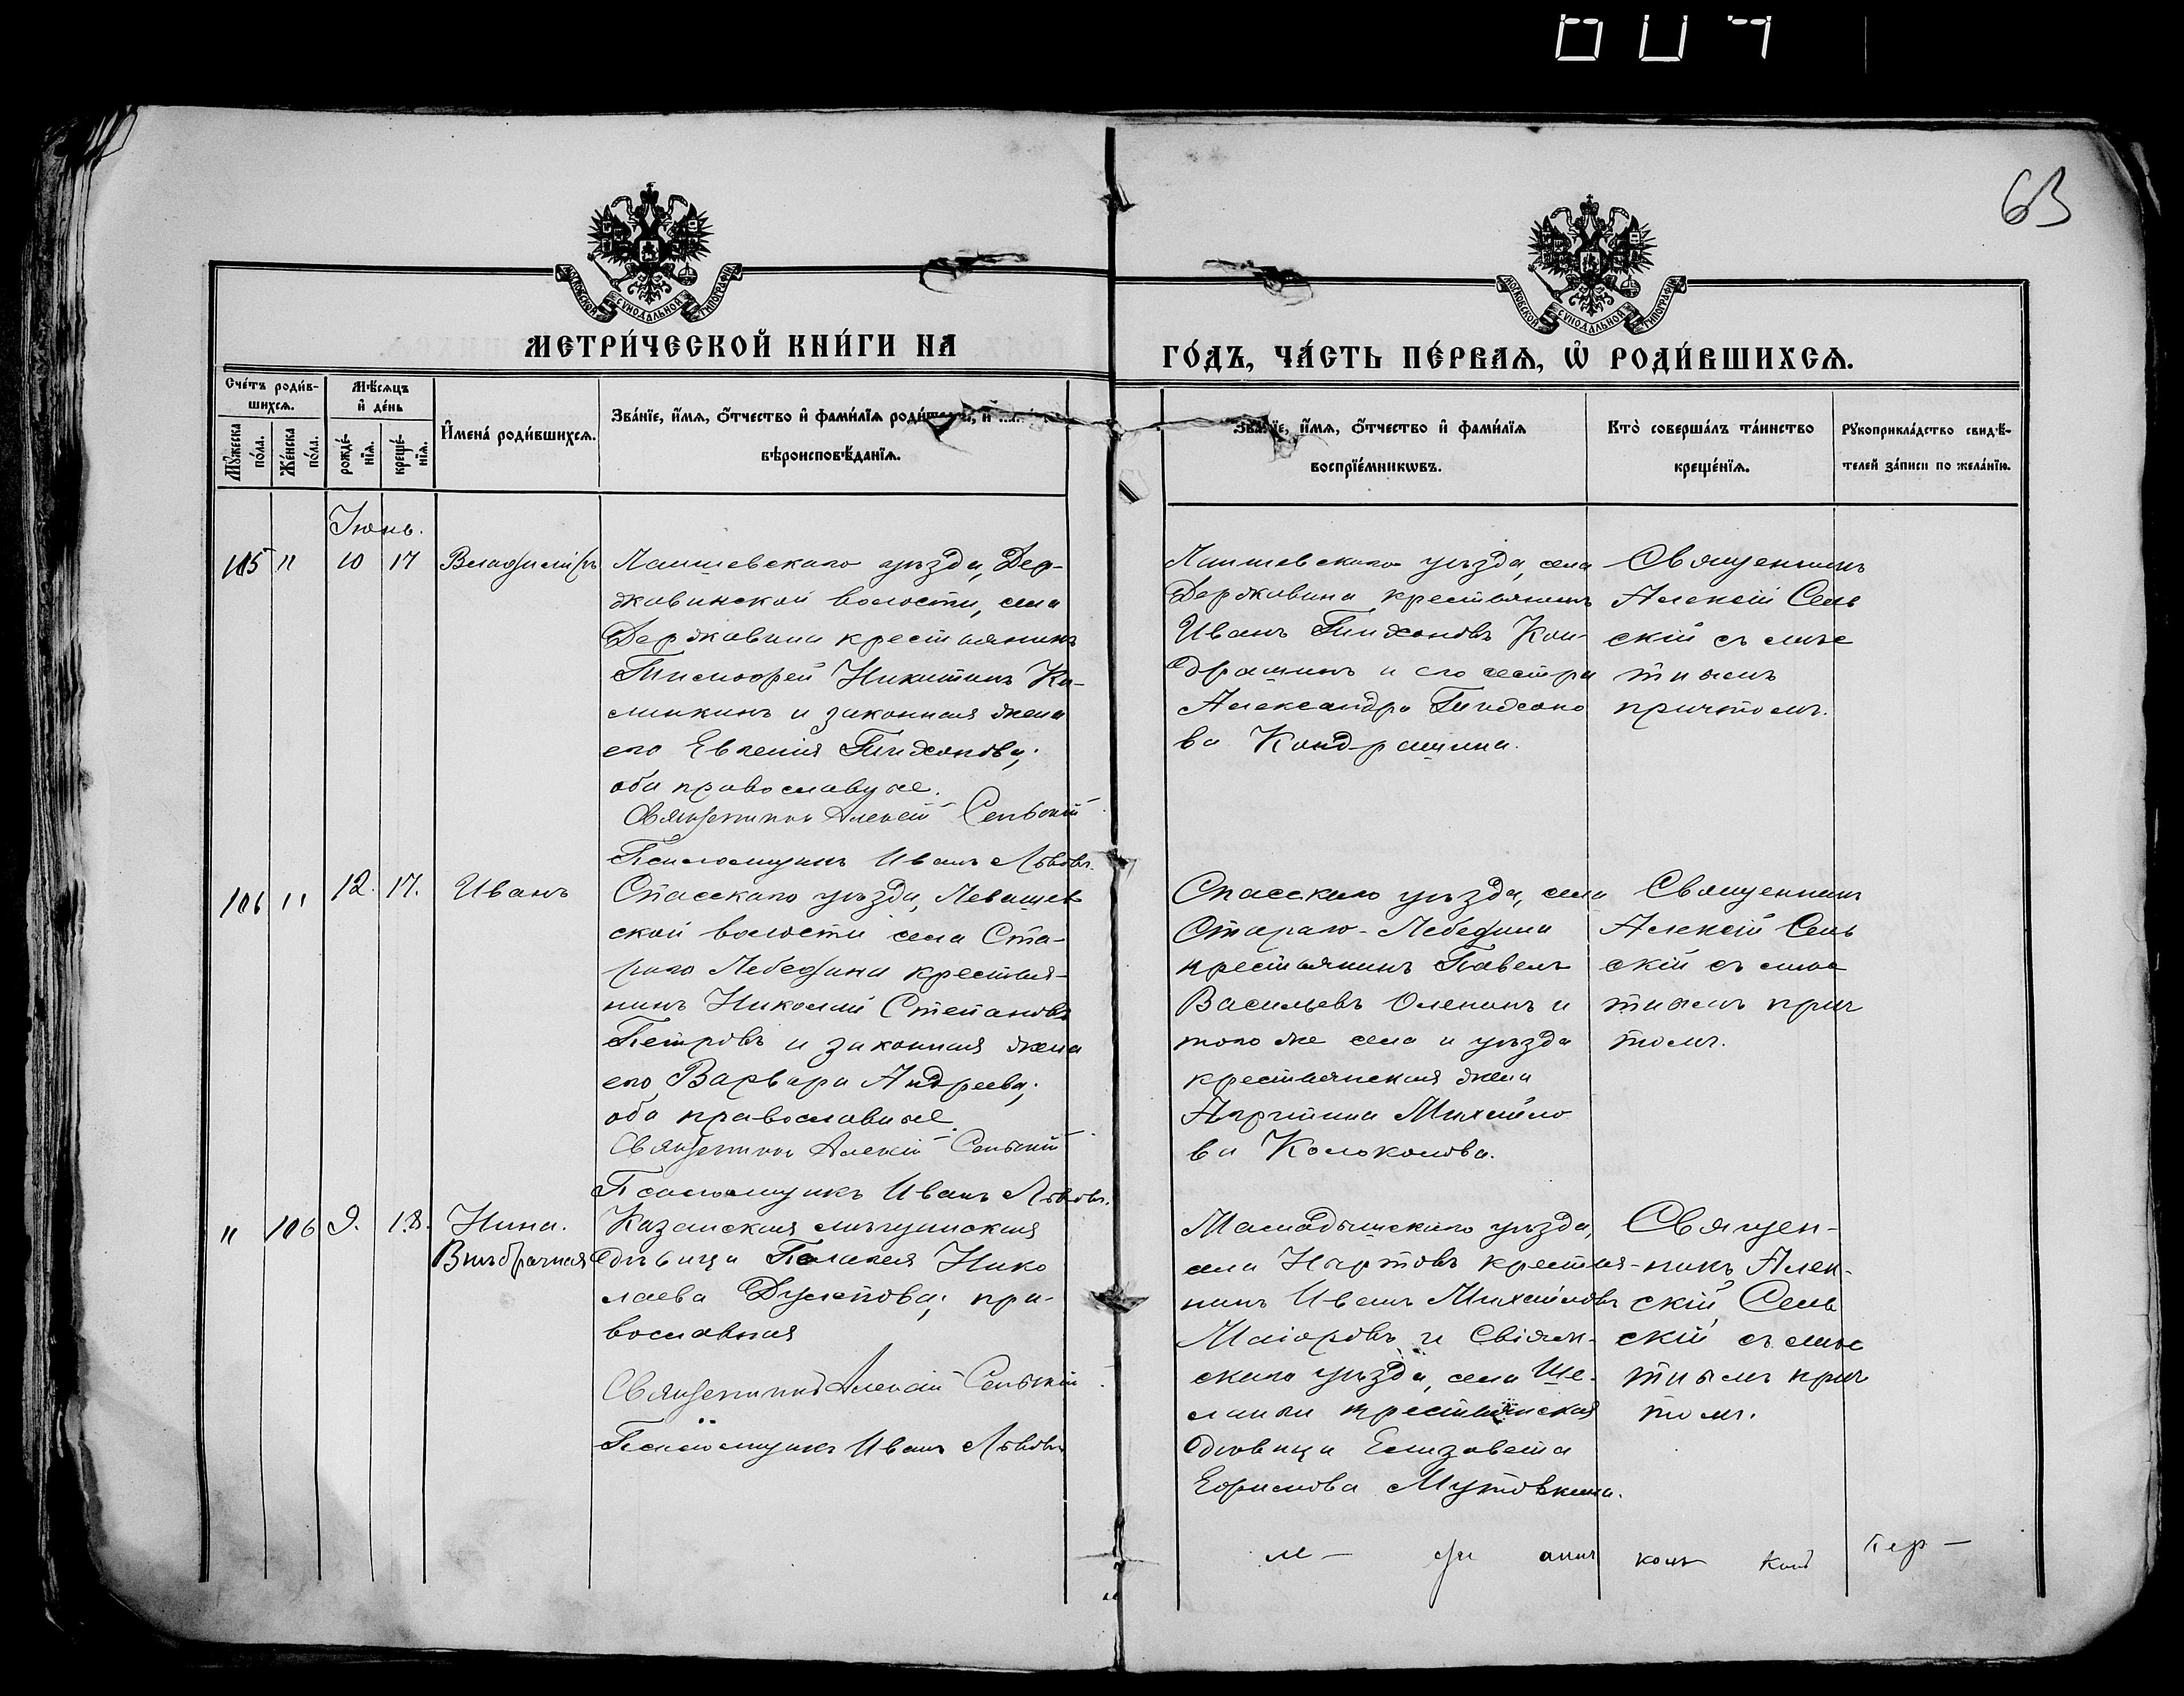 63
МОСКОВСКОЙ СѴНОДАЛЬНОЙ ТИПОГРАФІИ
МОСКОВСКОЙ СѴНОДАЛЬНОЙ ТИПОГРАФІИ
МЕТРИ́ЧЕСКОЙ КНИ́ГИ НА
ГО́ДЪ, ЧА́СТЬ ПЕ́РВАѦ, Ѡ҆ РОДИ́ВШИХСѦ.
Сче́тъ роди́в-
шихсѧ.
Мꙋ́жеска по́ла.
Же́нска по́ла.
Мѣ́сѧцъ
и҆ де́нь
рожде́-
нїѧ.
креще́-
нїѧ.
И҆мена̀ роди́вшихсѧ.
Зва́нїе, и҆́мѧ, ѻ҆́тчество и҆ фами́лїѧ роди́телей, и҆
вѣроисповѣ́данїѧ.
Зва́нїе, и҆́мѧ, ѻ҆́тчество и҆ фами́лїѧ
воспрїе́мникѡвъ.
Кто̀ соверша́лъ та́инство
креще́нїѧ.
Рꙋкоприкла́дство свидѣ́-
телей за́писи по жела́нїю.
Іюнь.
105 " 10 17 Владиміръ
Лаишевскаго уѣзда, Дер-
жавинской волости, села
Державина крестьянинъ
Тимофей Никитинъ Ка-
линкинъ и законная жена
его Евгенія Тихонова;
оба православные.
Священникъ Алексій Сельскій
Псаломщикъ Иванъ Львовъ.
Лаишевскаго уѣзда, села
Державина крестьянинъ
Иванъ Тихоновъ Кон-
драшинъ и его сестра
Александра Тихоно
ва Кондрашина.
Священникъ
Алексій Сель
скій съ мѣс
тнымъ
причтомъ.
106 " 12. 17. Иванъ
Спасскаго уѣзда, Левашев
ской волости села Ста-
раго Лебедина крестья-
нинъ Николай Степановъ
Петровъ и законная жена
его Варвара Андреева;
оба православные.
Священникъ Алексій Сельскій
Псаломщикъ Иванъ Львовъ.
Спасскаго уѣзда, села
Стараго-Лебедина
крестьянинъ Павелъ
Васильевъ Оленинъ и
того же села и уѣзда
крестьянская жена
Михайло
ва Колоколова.
Священникъ
Алексій Сель
скій съ мѣс
тнымъ прич
томъ.
" 106 9. 18. Нина.
Внѣбрачная
Казанская мѣщанская
дѣвица Пелагея Нико
лаева пра-
вославная
Священникъ Алексій Сельскій
Псаломщикъ Иванъ Львовъ
Мамадышскаго уѣзда,
села Нартовъ крестья-
нинъ Иванъ Михайловъ
Маіоровъ и Свіяж-
скаго уѣзда, села Ше-
ланги крестьянская
дѣвица Елизавета
Ефимова Мутовкина.
Священ-
никъ Алек-
сій Сель
скій съ мѣс
тнымъ прич
томъ.